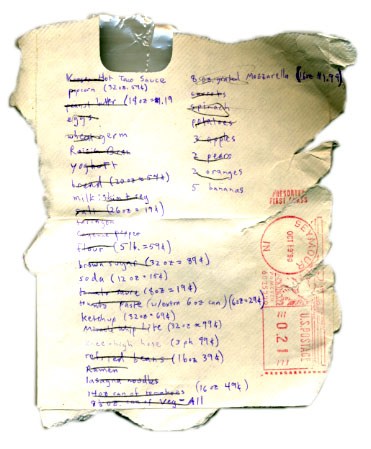 Kroger Hot Taco Sauce
popcorn (32oz.59¢)
peanut butter (18oz=1.19
eggs
wheat germ
Raisin Bran
yoghurt
bread (20oz=54¢)
milk: skim
salt (26oz=19¢)
flour (5 lb.=59¢)
brown sugar (32oz=89¢)
soda (12oz=15¢)
tomato (8oz=19¢)
paste (w/extra 6oz can) (6oz=29¢)
ketchup (32oz=69¢)
Miracle Whip Lite (32oz=99¢)
knee high hose (3ph 99¢)
refried beans (16oz 39¢)
Ramen
lasagna noodles
14oz can of tomatoes (16oz 49¢)
8oz. can of Veg-All
8oz grated Mozzarella (16oz $1.99)
carrots
spinach
potatoes
3 apples
2 pears
2 oranges
5 bananas
PRESORTED
FIRST CLASS
SEYMOUR
OCT 19
IN
U.S. POSTAGE
021